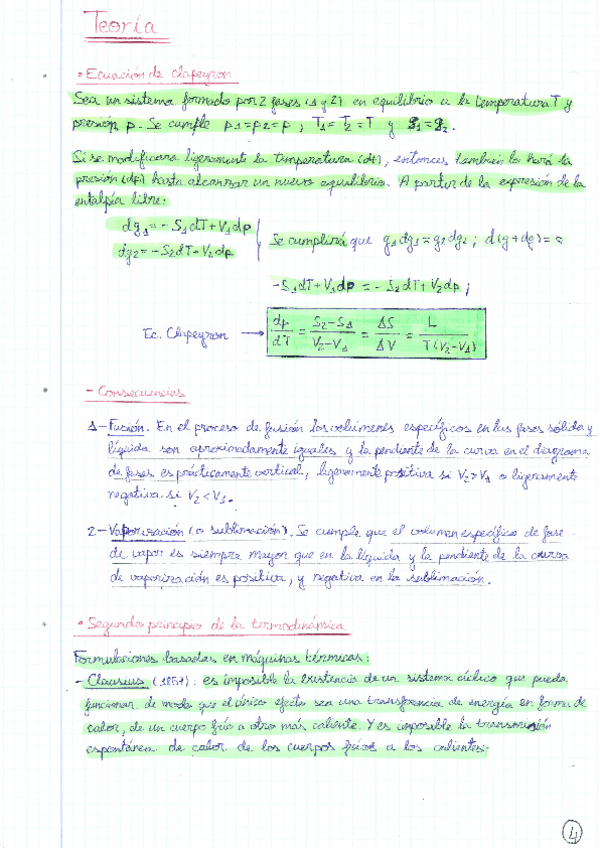 Teoría
• Ecuación de Clapeyron
Sea un sistema formado por 2 fases (1 y 2) en equilibrio a la temperatura T y
presión p. Se cumple p1=p2=p ; T1=T2=T y g1=g2.
Si se modificara ligeramente la temperatura (dt), entonces también lo hará la
presión (dp) hasta alcanzar un nuevo equilibrio. A partir de la expresión de la
entalpía libre:
dg1=-S1dT+V1dp
dg2=-S2dT+V2dp
Se cumplirá que g1dg1=g2dg2; d(g+dg)=0
-S1dT+V1dp = -S2dT+V2dp ;
Ec. Clapeyron → dp/dT = S2-S1/V2-V1 = ΔS/ΔV = L/T(V2-V1)
- Consecuencias
1- Fusión. En el proceso de fusión los volúmenes específicos en las fases sólida y
líquida son aproximadamente iguales y la pendiente de la curva en el diagrama
de fases es prácticamente vertical, ligeramente positiva si V2>V1 o ligeramente
negativa si V2<V1.
2- Vaporización (o sublimación). Se cumple que el volumen específico de fase
de vapor es siempre mayor que en la líquida y la pendiente de la curva
de vaporización es positiva, y negativa en la sublimación.
• Segundo principio de la termodinámica
Formulaciones basadas en máquinas térmicas:
- Clausius (1857): es imposible la existencia de un sistema cíclico que pueda
funcionar de modo que el único efecto sea una transferencia de energía en forma de
calor, de un cuerpo frío a otro más caliente. Y es imposible la transmisión
espontánea de calor de los cuerpos fríos a los calientes.
4